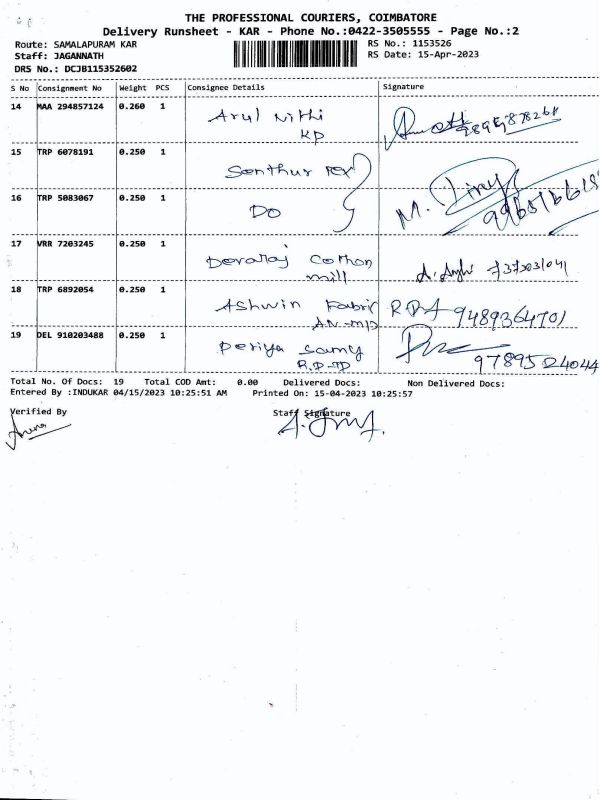 THE PROFESSIONAL COURIERS, COIMBATORE
Delivery Runsheet - KAR - Phone No.:0422-3505555 - Page No.:2
Route: SAMALAPURAM KAR RS No.: 1153526
Staff: JAGANNATH RS Date: 15-Apr-2023
DRS No.: DCJB115352602
S No Consignment No Weight PCS Consignee Details Signature
14 MAA 294857124 0.260 1 Arul Nithi
KP
15 TRP 6078191 0.250 1 Senthur Tex
16 TRP 5083067 0.250 1 DO M.
17 VRR 7203245 0.250 1 Devaraj Cotton
mill
18 TRP 6892054 0.250 1 Ashwin Fabric 9489364701
19 DEL 910203488 0.250 1 Periya Samy
9789524044
Total No. Of Docs: 19 Total COD Amt: 0.00 Delivered Docs: Non Delivered Docs:
Entered By :INDUKAR 04/15/2023 10:25:51 AM Printed On: 15-04-2023 10:25:57
Verified By Staff Signature